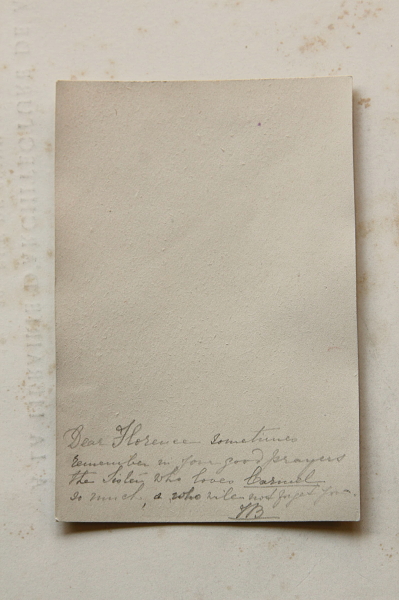 Dear Florence sometimes
remember in your good prayers
the Sister who loves Carmel
so much, & who will not forget you.
A LA LIBRAIRIE D'ARCHITECTURE DE